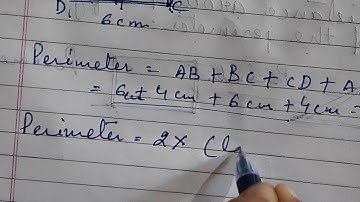 D C
6 cm
Perimeter = AB + BC + CD + A
= 6cm + 4 cm + 6 cm + 4 cm =
Perimeter = 2x (l